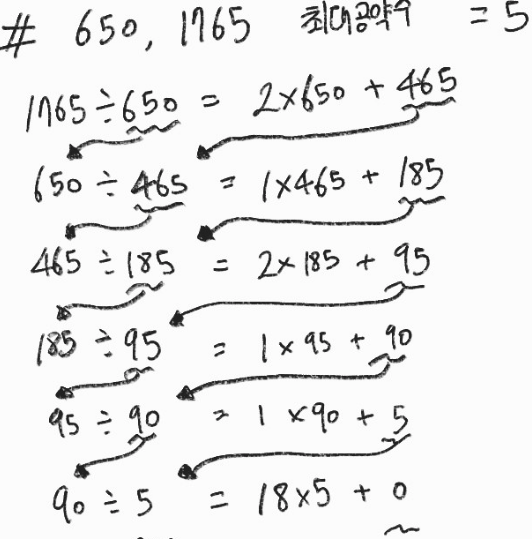 # 650, 1765 최대공약수 = 5
1765 ÷ 650 = 2×650 + 465
650 ÷ 465 = 1×465 + 185
465 ÷ 185 = 2×185 + 95
185 ÷ 95 = 1×95 + 90
95 ÷ 90 = 1×90 + 5
90 ÷ 5 = 18×5 + 0